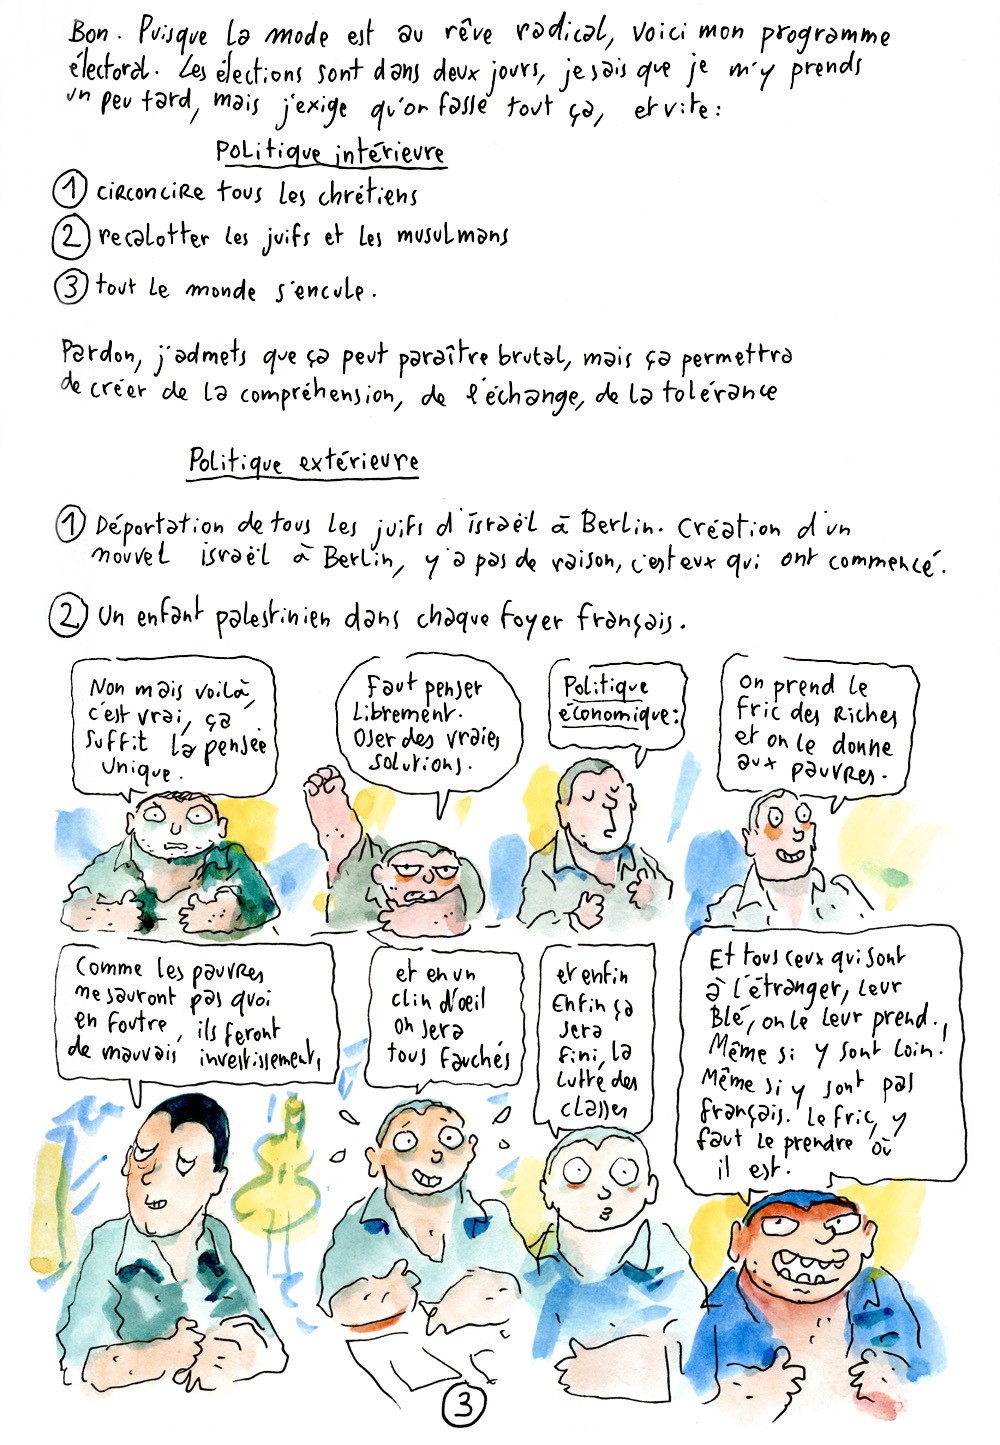 Bon. Puisque la mode est au rêve radical, voici mon programme
électoral. Les élections sont dans deux jours, je sais que je m'y prends
un peu tard, mais j'exige qu'on fasse tout ça, et vite :
Politique intérieure
1 circoncire tous les chrétiens
2 recalotter les juifs et les musulmans
3 tout le monde s'encule.
Pardon, j'admets que ça peut paraître brutal, mais ça permettra
de créer de la compréhension, de l'échange, de la tolérance
Politique extérieure
1 Déportation de tous les juifs d'israël à Berlin. Création d'un
nouvel israël à Berlin, y'a pas de raison, c'est eux qui ont commencé.
2 Un enfant palestinien dans chaque foyer français.
Non mais voilà,
c'est vrai, ça
suffit la pensée
unique.
Faut penser
Librement.
Oser des vraies
solutions.
Politique
économique :
on prend le
fric des Riches
et on le donne
aux pauvres.
Comme les pauvres
ne sauront pas quoi
en foutre, ils feront
de mauvais investissement,
et en un
clin d'oeil
on sera
tous fauchés
et enfin
Enfin ça
sera
fini, la
lutte des
classes
Et tous ceux qui sont
à l'étranger, leur
Blé, on le leur prend.
Même si y sont loin !
Même si y sont pas
français. Le fric, y
faut le prendre où
il est.
3